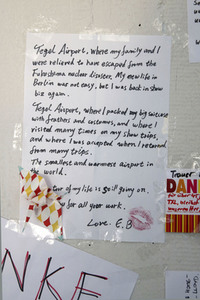 Tegel Airport, where my family and I
were relieved to have escaped from the
Fukushima nuclear disaster. My new life in
Berlin was not easy, but I was back in show
biz again.
Tegel Airport, where I packed my big suitcase
with feathers and costumes, and where I
visited many times on my show trips,
and where I was accepted when I returned
from many trips.
The smallest and warmest airport in
the world.
of my life is still going on.
for all your work.
Love. E.B
Trauer
DAN
TXL
NKE